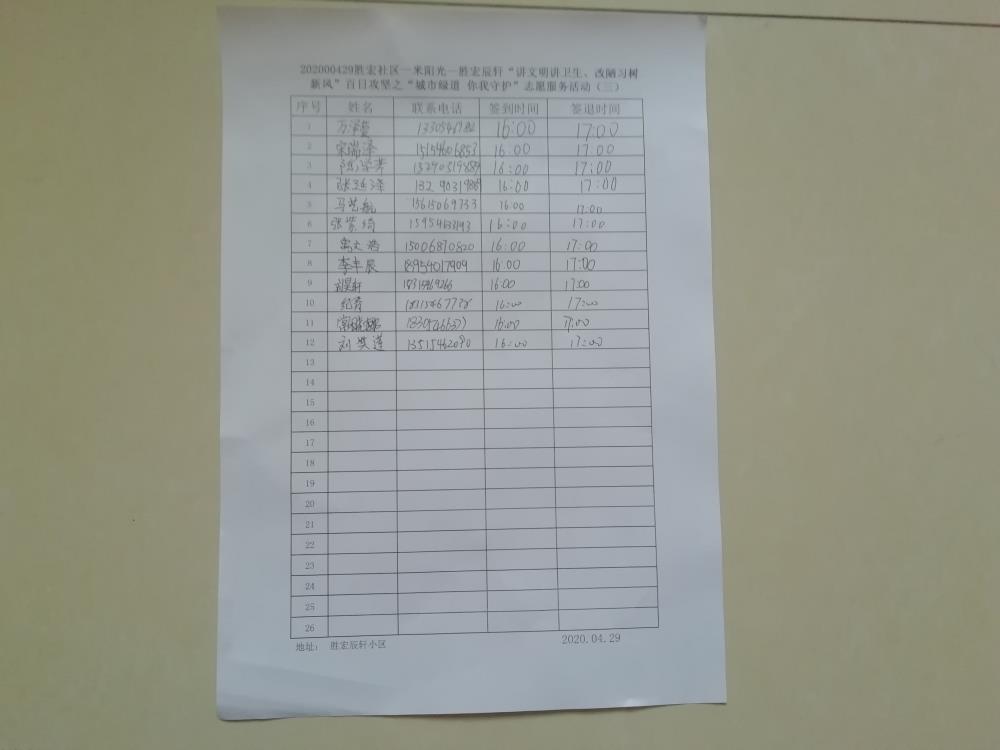 202000429胜宏社区一米阳光—胜宏辰轩“讲文明讲卫生、改陋习树
新风”百日攻坚之“城市绿道 你我守护”志愿服务活动（三）
序号 姓名 联系电话 签到时间 签退时间
1 16:00 17:00
2 宋瑞泽 15154606853 16:00 17:00
3 16:00 17:00
4 16:00 17:00
5 马艺航 15615069733 16:00 17:00
6 张紫琦 16:00 17:00
7 15006870820 16:00 17:00
8 李丰辰 18954017909 16:00 17:00
9 16:00 17:00
10 纪青 16:00 17:00
11 16:00 17:00
12 刘笑莲 13515462090 16:00 17:00
13
14
15
16
17
18
19
20
21
22
23
24
25
26
地址： 胜宏辰轩小区 2020.04.29